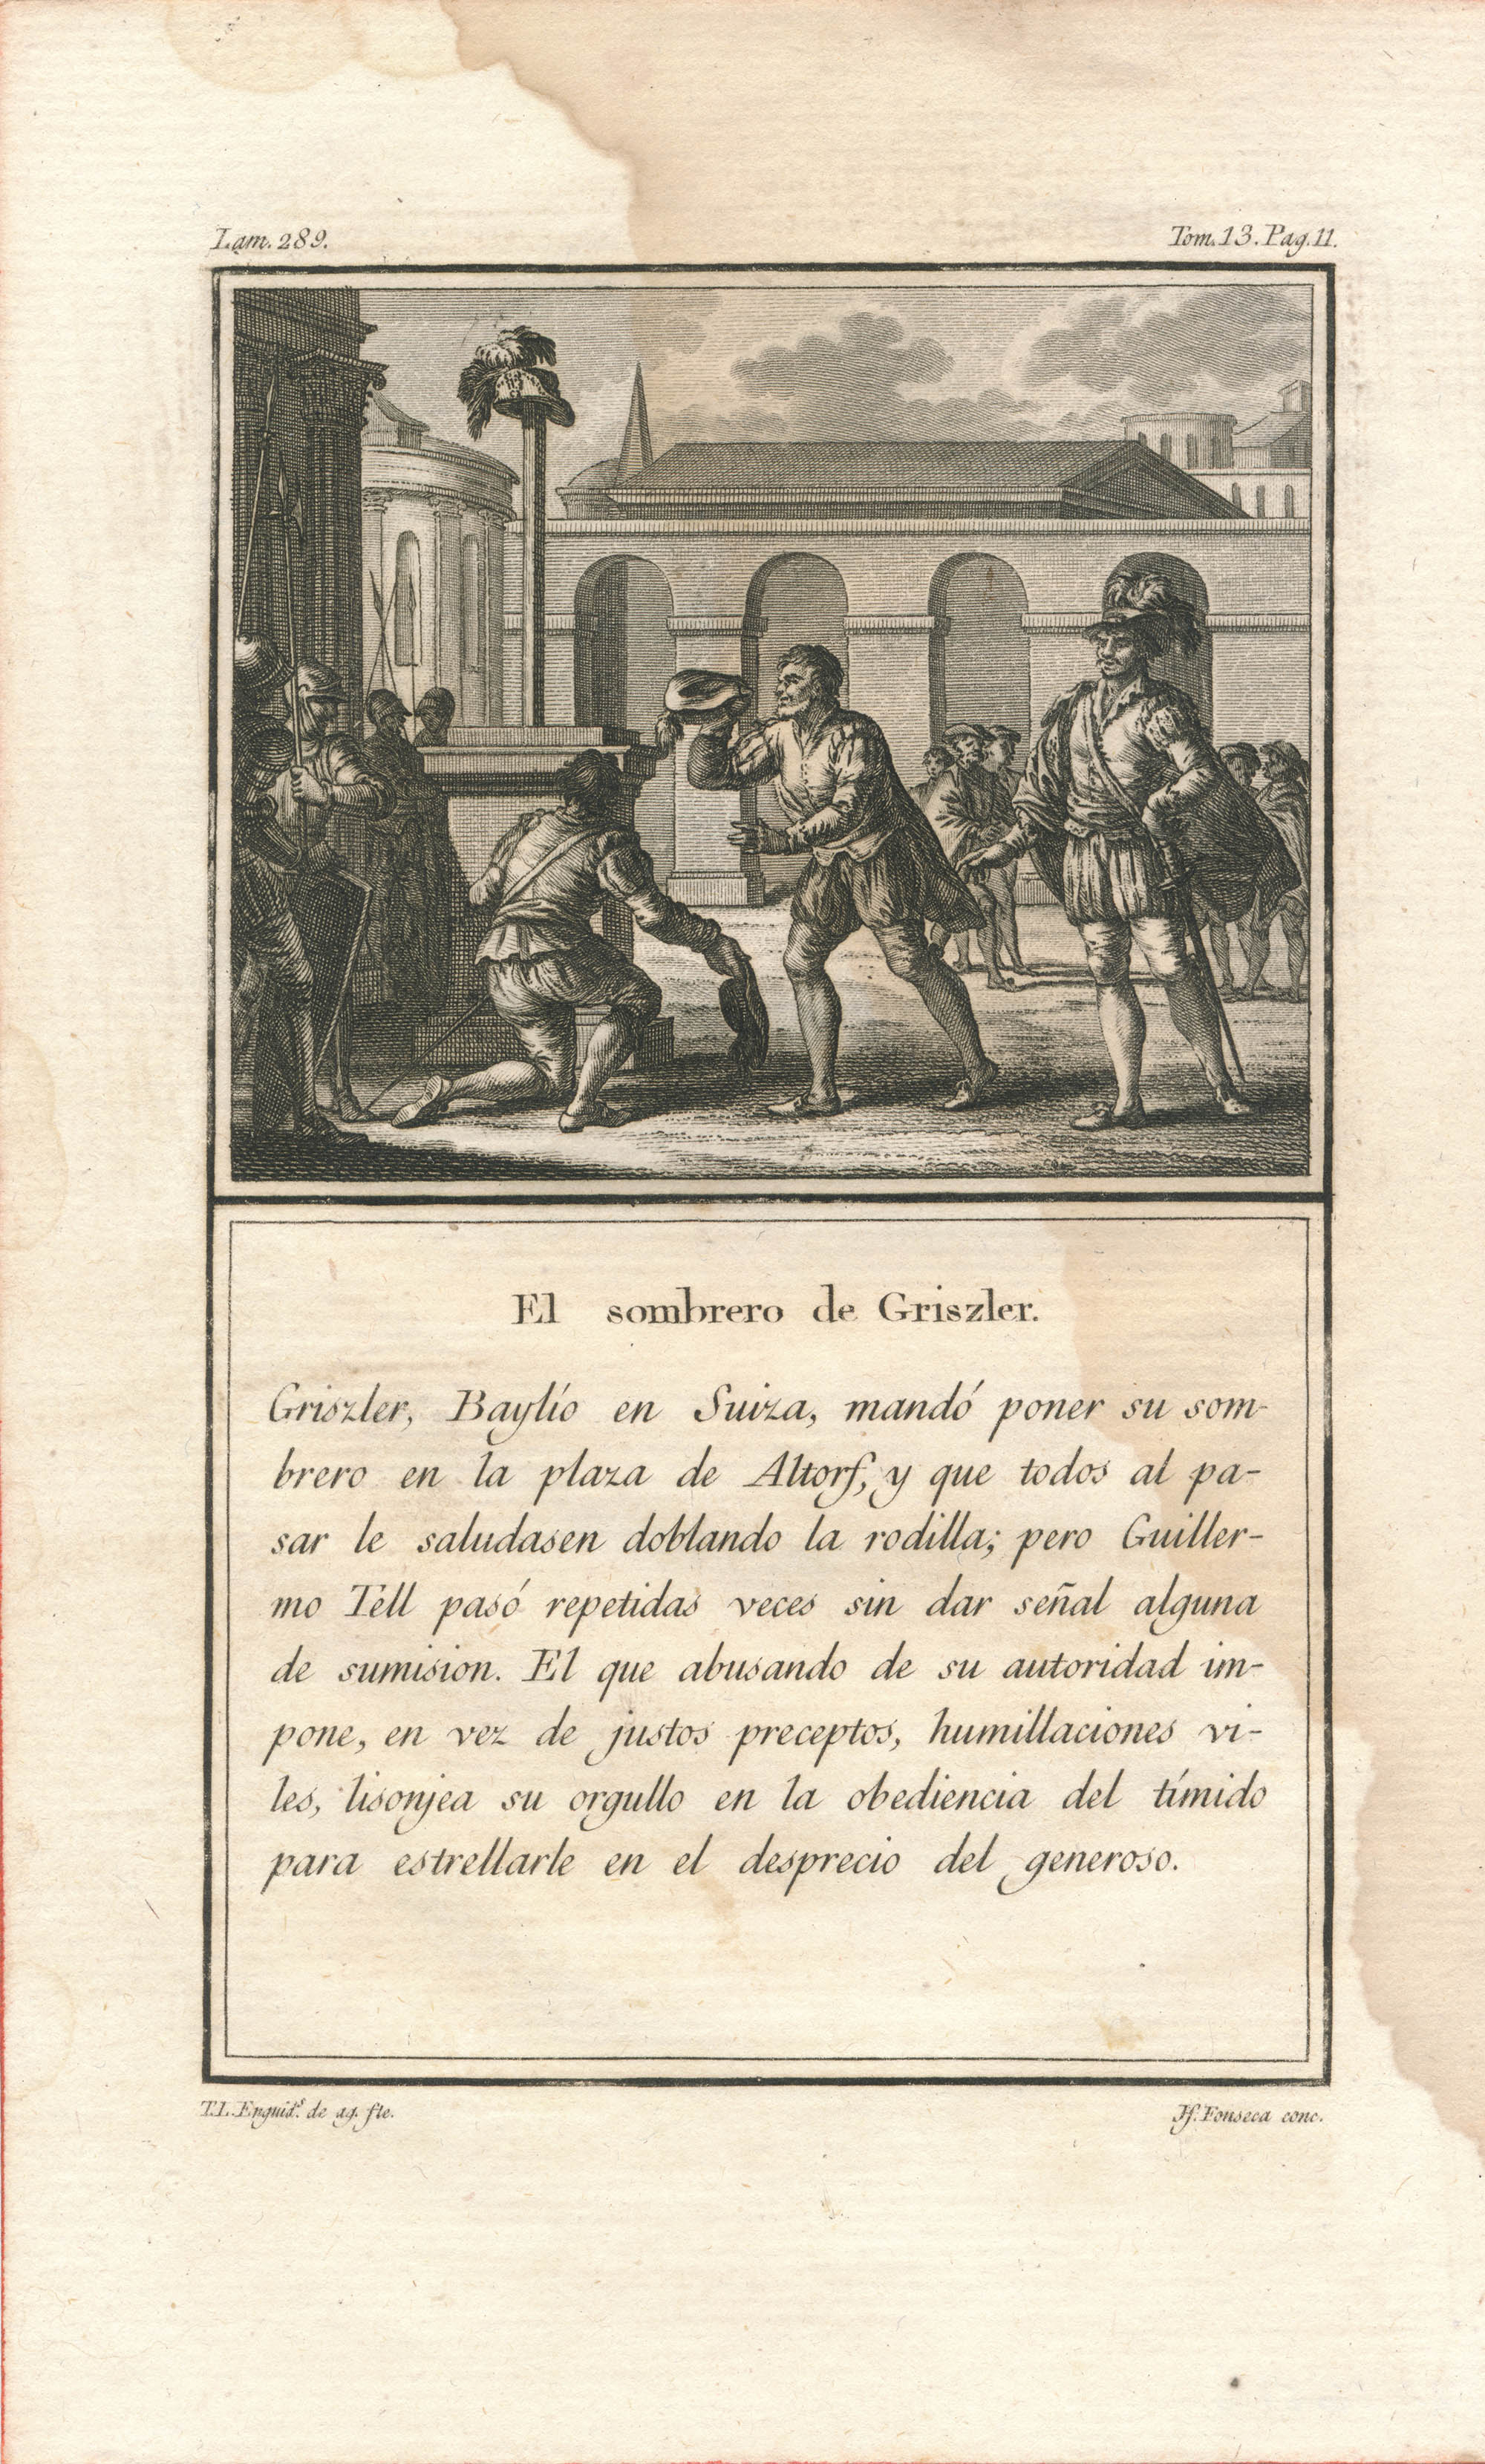 Lam. 289.
Tom. 13. Pag. 11.
El sombrero de Griszler.
Griszler, Baylío en Suiza, mandó poner su som-
brero en la plaza de Altorf, y que todos al pa-
sar le saludasen doblando la rodilla; pero Guiller-
mo Tell pasó repetidas veces sin dar señal alguna
de sumision. El que abusando de su autoridad im-
pone, en vez de justos preceptos, humillaciones vi-
les, lisonjea su orgullo en la obediencia del tímido
para estrellarle en el desprecio del generoso.
T.L. Enguid.s de ag. fte.
Jf. Fonseca conc.